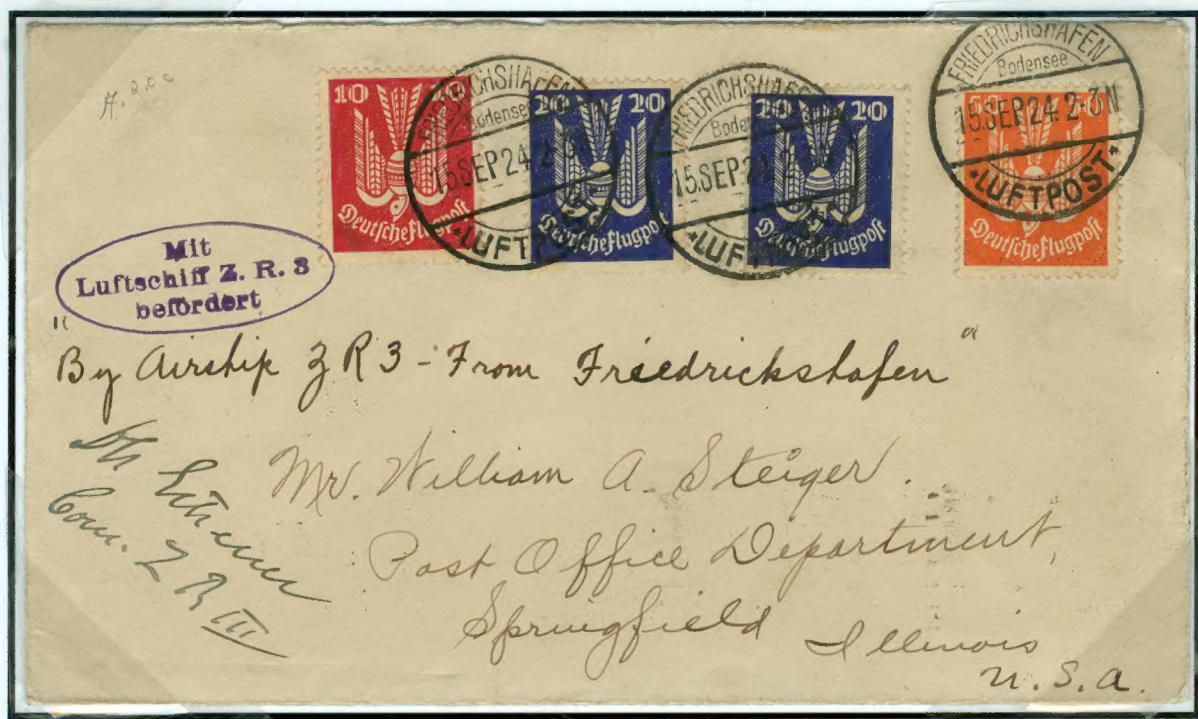 10 10
Deutsche Flugpost
FRIEDRICHSHAFEN
Bodensee
15.SEP 24. 2
*LUFTPOST
20 20
Deutsche Flugpost
FRIEDRICHSHAFEN
Bodensee
15.SEP 24 2
*LUFTPOST
20 20
Deutsche Flugpost
FRIEDRICHSHAFEN
Bodensee
15.SEP 24. 2-3N
*LUFTPOST*
Deutsche Flugpost
Mit
Luftschiff Z. R. 3
befördert
"By Airship Z R 3 - From Friedrickshafen"
Mr. William A. Steiger.
Post Office Department,
Springfield
Illinois
U. S. A.
Com. Z R III